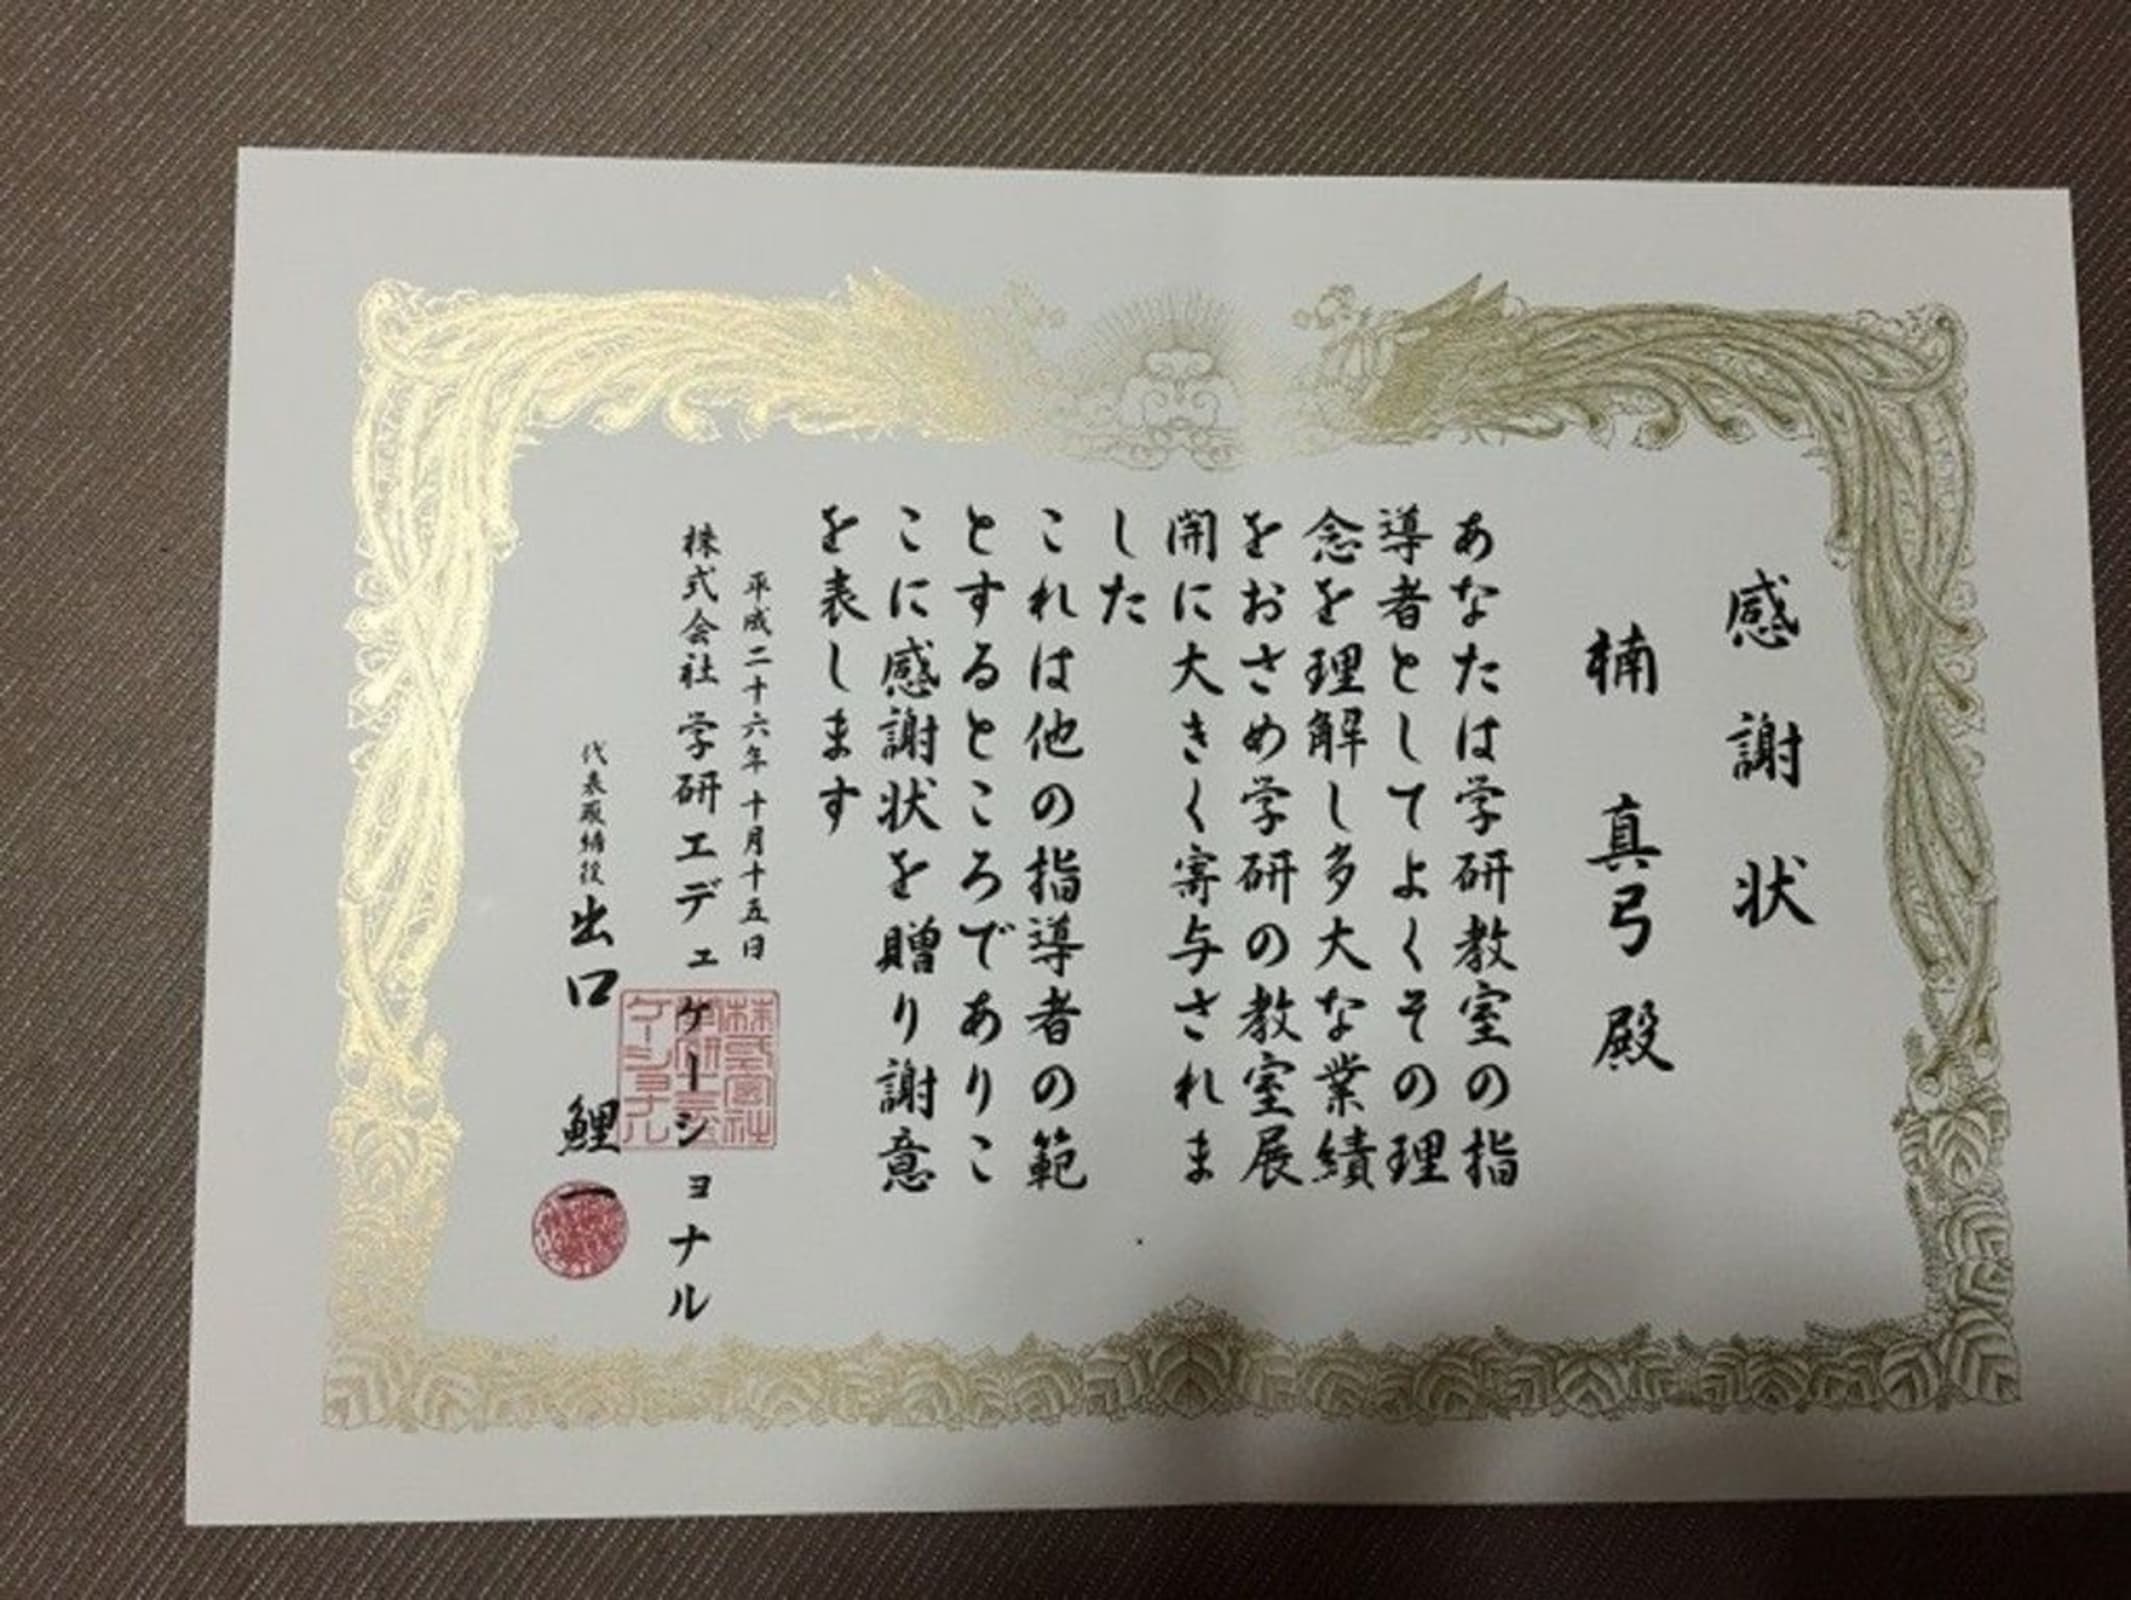 感謝状
楠 真弓 殿
あなたは学研教室の指
導者としてよくその理
念を理解し多大な業績
をおさめ学研の教室展
開に大きく寄与されま
した
これは他の指導者の範
とするところでありこ
こに感謝状を贈り謝意
を表します
平成二十六年十月十五日
株式会社 学研エデュケーショナル
代表取締役 出口 鯉一
株式会社
学研エデュ
ケーショナル